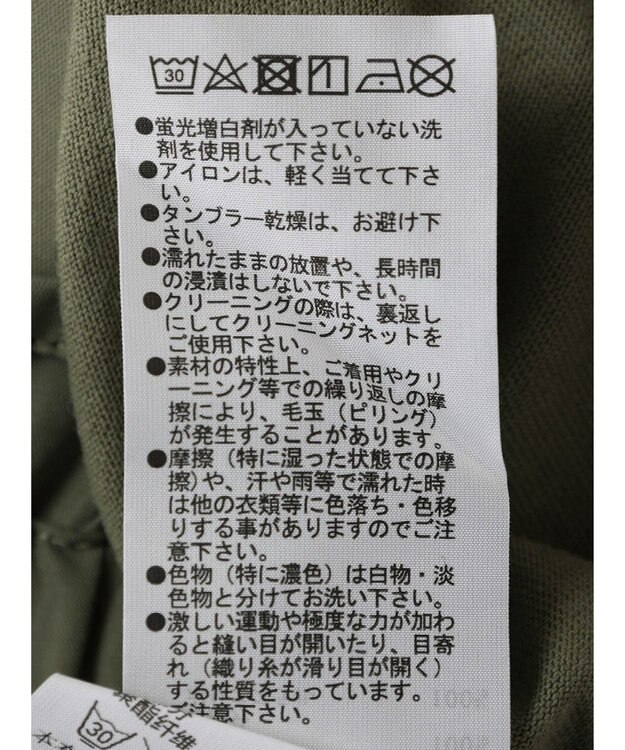 30
●蛍光増白剤が入っていない洗
剤を使用して下さい。
●アイロンは、軽く当てて下さ
い。
●タンブラー乾燥は、お避け下
さい。
●濡れたままの放置や、長時間
の浸漬はしないで下さい。
●クリーニングの際は、裏返し
にしてクリーニングネットを
ご使用下さい。
●素材の特性上、ご着用やクリ
ーニング等での繰り返しの摩
擦により、毛玉（ピリング）
が発生することがあります。
●摩擦（特に湿った状態での摩
擦）や、汗や雨等で濡れた時
は他の衣類等に色落ち・色移
りする事がありますのでご注
意下さい。
●色物（特に濃色）は白物・淡
色物と分けてお洗い下さい。
●激しい運動や極度な力が加わ
ると縫い目が開いたり、目寄
れ（織り糸が滑り目が開く）
する性質をもっています。
ご注意下さい。
聚酯纤维
30